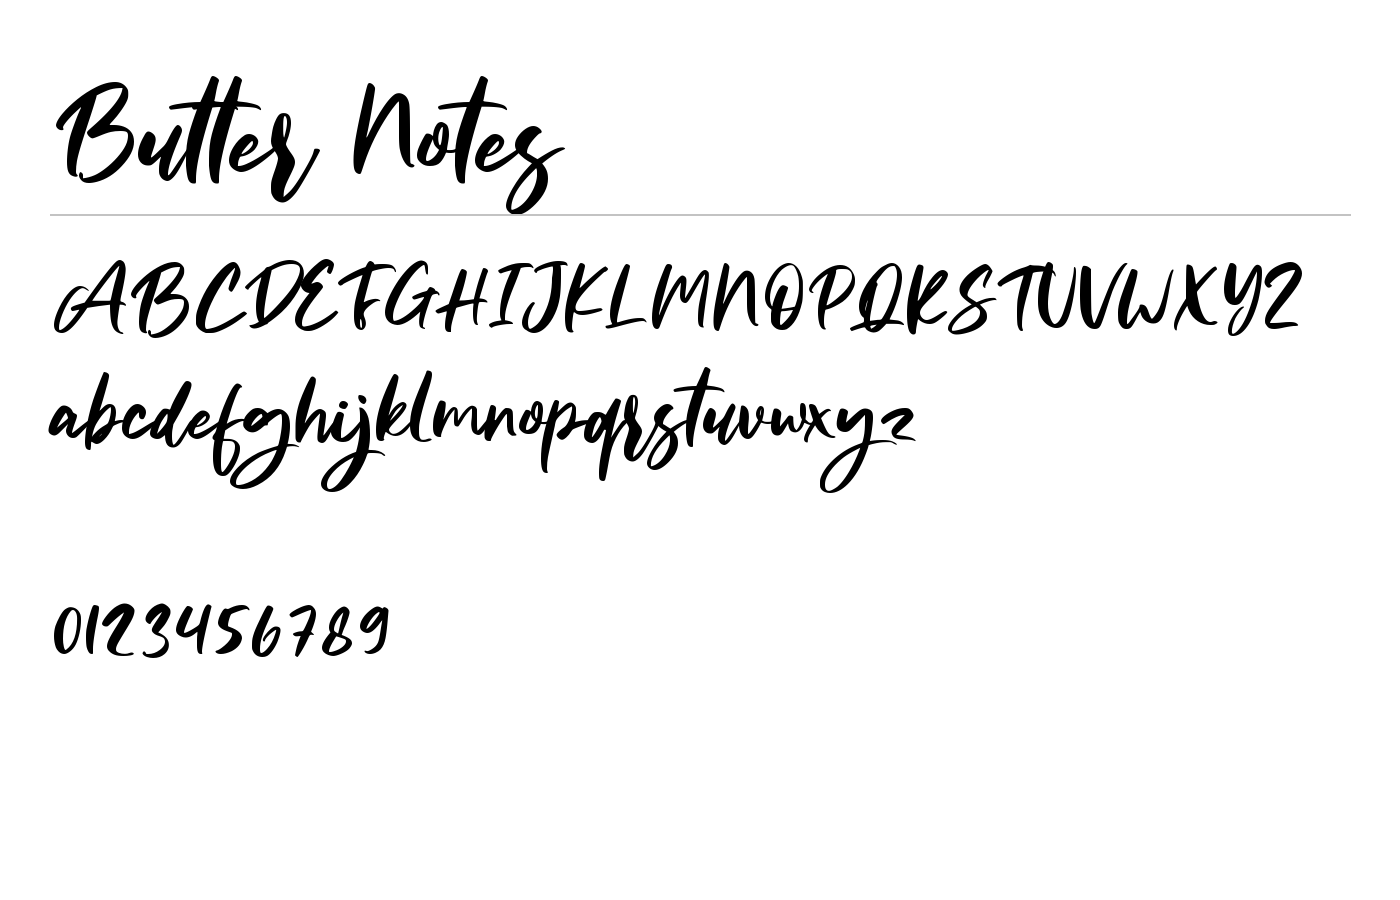 Butter Notes
ABCDEFGHIJKLMNOPQRSTUVWXYZ
abcdefghijklmnopqrstuvwxyz
0123456789